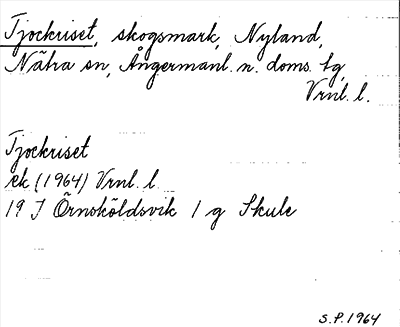 Tjockriset, skogsmark, Nyland,
Nätra sn, Ångermanl. n. doms. tg,
Vrnl. l.
Tjockriset
ek (1964) Vrnl. l.
19 J Örnsköldsvik 1 g Skule
S.P. 1964